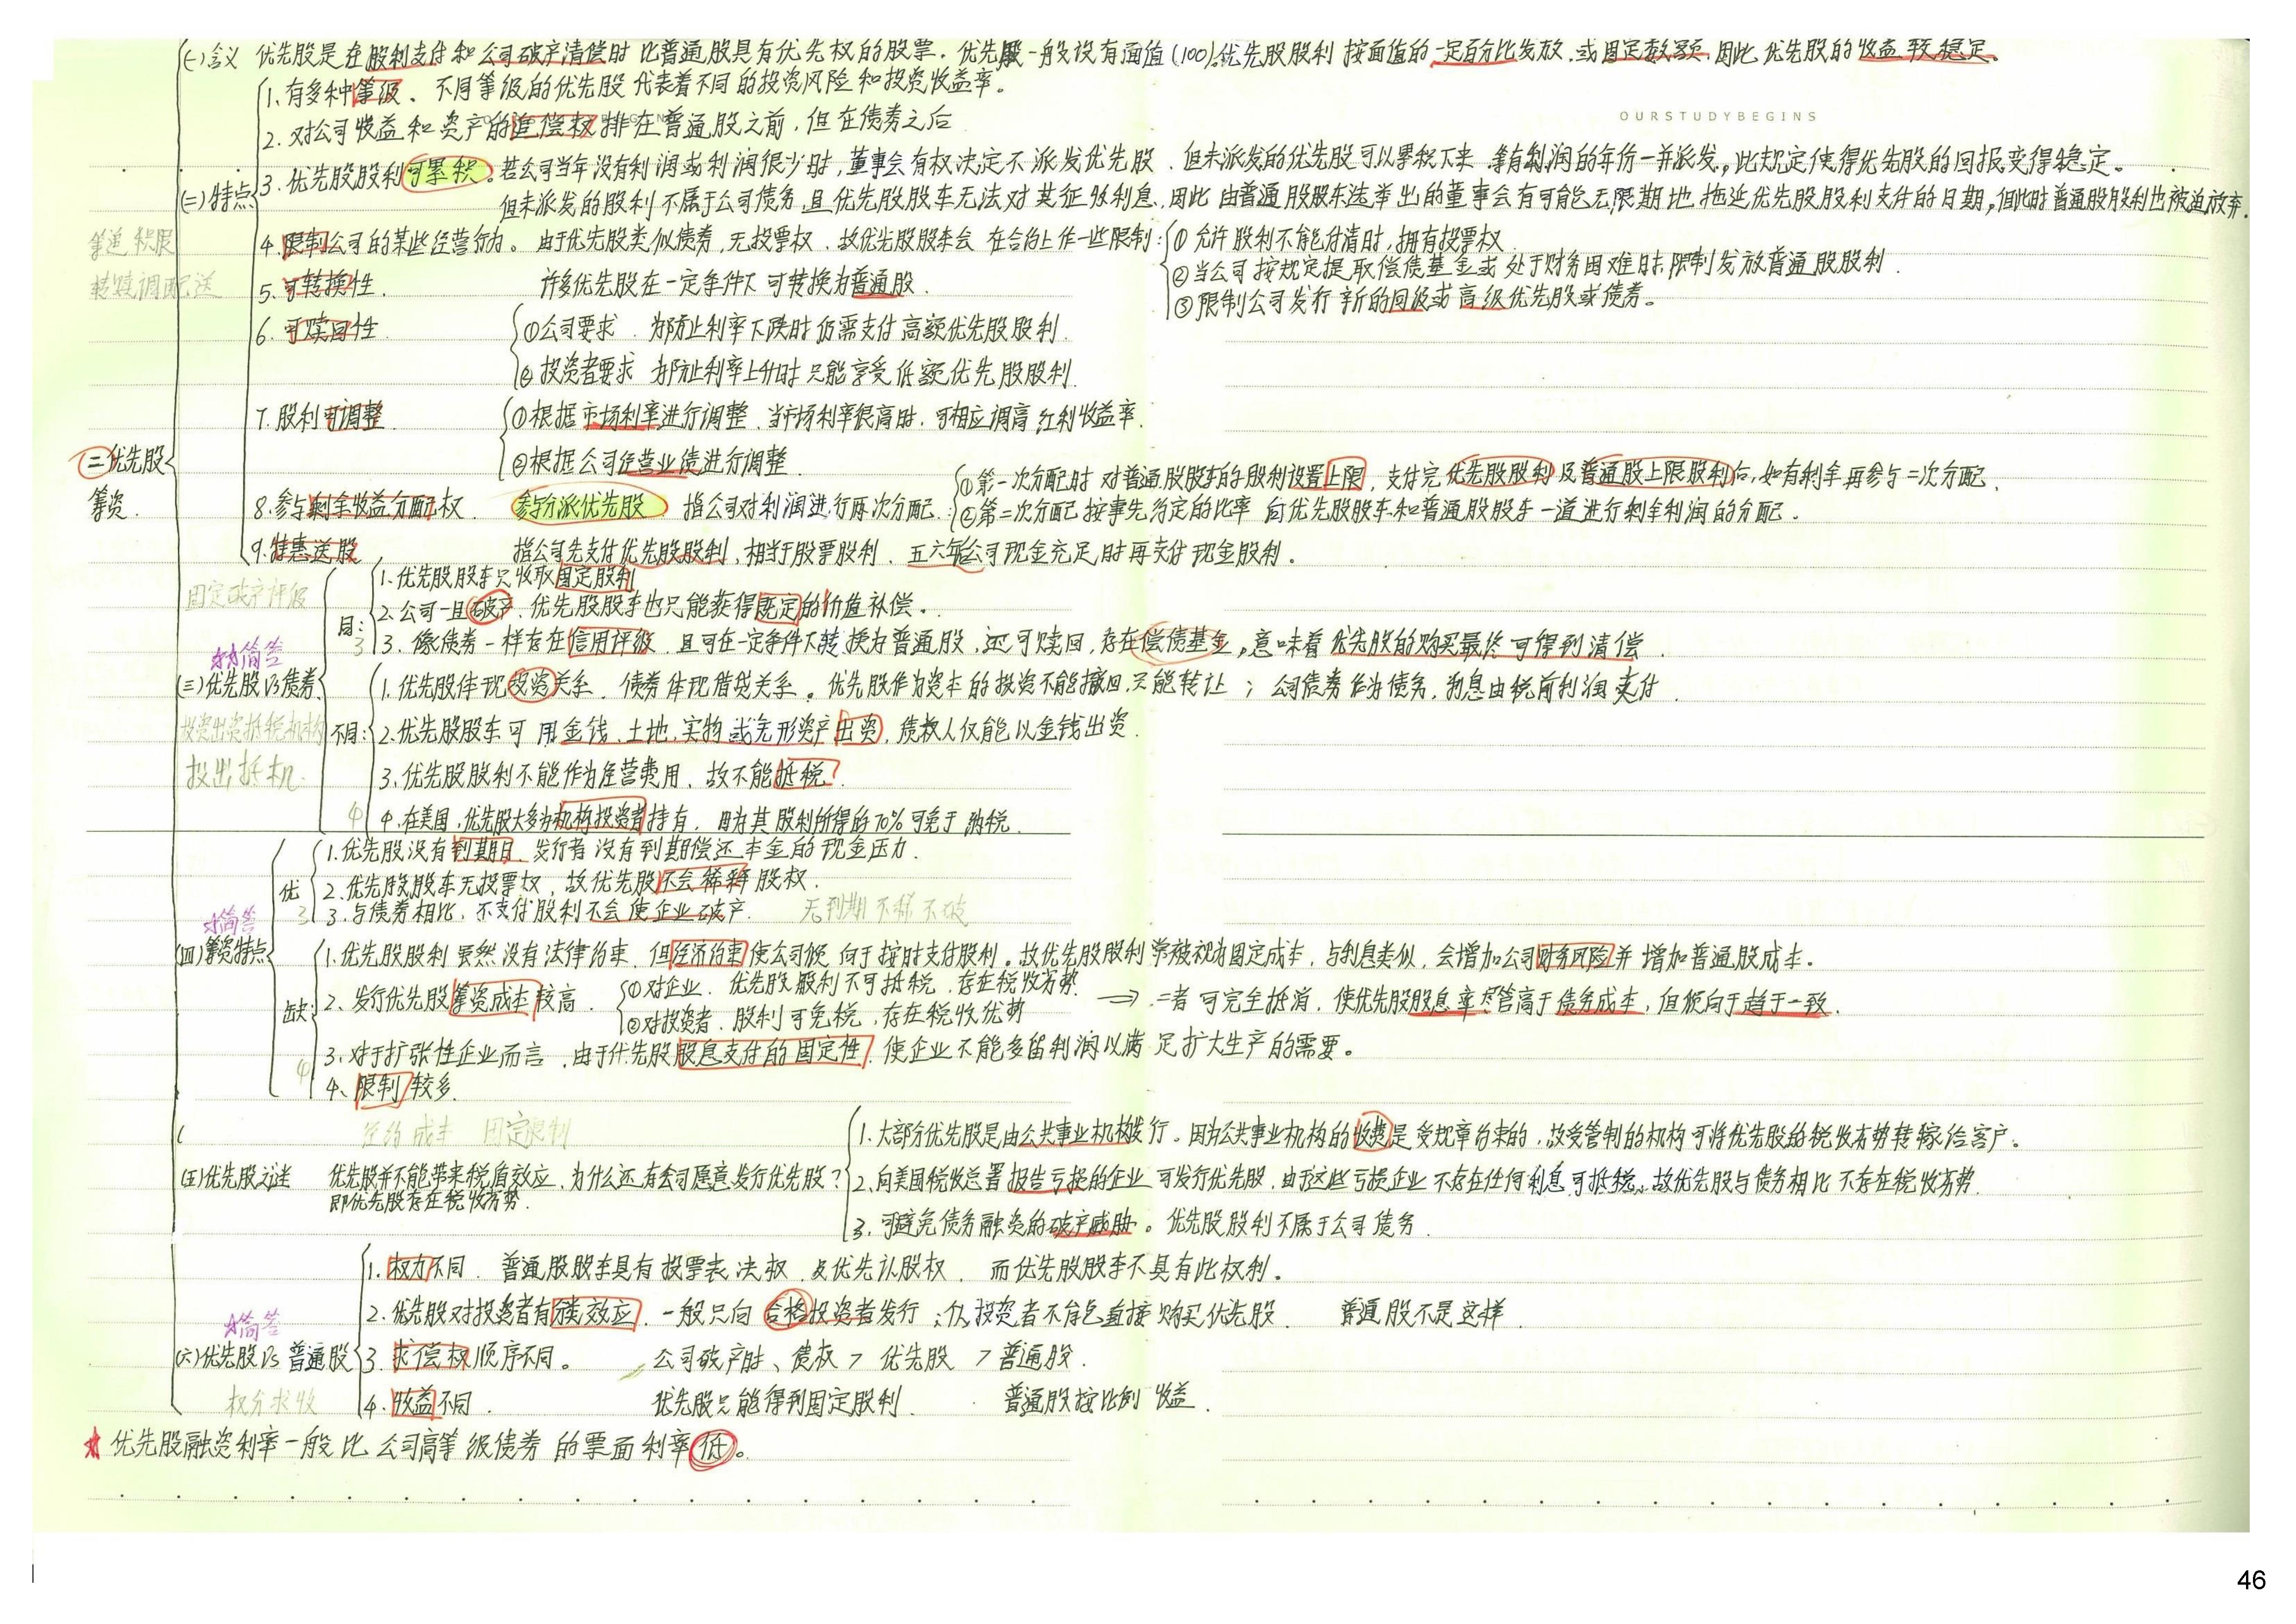 (一)含义 优先股是在股利支付和公司破产清偿时比普通股具有优先权的股票。优先股一般设有面值(100)。优先股股利按面值的一定百分比发放,或固定数额,因此优先股的收益较稳定。
OURSTUDYBEGINS
(二)特点
1.有多种等级、不同等级的优先股代表着不同的投资风险和投资收益率。
2.对公司收益和资产的追偿权排在普通股之前,但在债券之后
3.优先股股利可累积。若公司当年没有利润或利润很少时,董事会有权决定不派发优先股,但未派发的优先股可以累积下来,等有利润的年份一并派发,此规定使得优先股的回报变得稳定。
但未派发的股利不属于公司债务,且优先股股东无法对其征收利息,因此由普通股股东选举出的董事会有可能无限期地拖延优先股股利支付的日期,但此时普通股股利也被迫放弃。
等追积限
转赎调配送
4.限制公司的某些经营行为。由于优先股类似债券,无投票权,故优先股股东会在合约上作一些限制:
①允许股利不能付清时,拥有投票权
②当公司按规定提取偿债基金或处于财务困难时,限制发放普通股股利.
③限制公司发行新的同级或高级优先股或债券。
5.可转换性. 许多优先股在一定条件下可转换为普通股.
6.可赎回性.
①公司要求.为防止利率下跌时仍需支付高额优先股股利.
②投资者要求 为防止利率上升时只能享受低额优先股股利.
7.股利可调整
①根据市场利率进行调整,当市场利率很高时,可相应调高红利收益率.
②根据公司经营业绩进行调整
二优先股
筹资.
8.参与剩余收益分配权. 参与分派优先股 指公司对利润进行两次分配.
①第一次分配时 对普通股股东的股利设置上限,支付完优先股股利及普通股上限股利后,如有剩余再参与二次分配.
②第二次分配 按事先约定的比率 向优先股股东和普通股股东一道进行剩余利润的分配.
9.特惠送股 指公司先支付优先股股利,相当于股票股利.五六年公司现金充足时再支付现金股利.
固定破产评级
☆☆简答
(三)优先股Vs债券
同: 3
1.优先股股东只收取固定股利
2.公司一旦破产,优先股股东也只能获得既定的价值补偿。
3.像债券一样存在信用评级,且可在一定条件下转换为普通股,还可赎回,存在偿债基金,意味着优先股的购买最终可得到清偿.
投资出资抵税机构
投出抵机.
不同: 4
1.优先股体现投资关系.债券体现借贷关系。优先股作为资本的投资不能撤回,只能转让;公司债券作为债务,利息由税前利润支付.
2.优先股股东可用金钱、土地、实物或无形资产出资,债权人仅能以金钱出资.
3.优先股股利不能作为经营费用,故不能抵税.
4.在美国,优先股大多为机构投资者持有,因为其股利所得的70%可免于纳税.
☆简答
(四)筹资特点
优 3
1.优先股没有到期日,发行者没有到期偿还本金的现金压力.
2.优先股股东无投票权,故优先股不会稀释股权.
3.与债券相比,不支付股利不会使企业破产. 无到期不稀不破
缺: 4
1.优先股股利虽然没有法律约束,但经济约束使公司倾向于按时支付股利。故优先股股利常被视为固定成本,与利息类似,会增加公司财务风险并增加普通股成本.
2.发行优先股筹资成本较高.
①对企业.优先股股利不可抵税,存在税收劣势
②对投资者.股利可免税,存在税收优势
⟹ 二者可完全抵消,使优先股股息率尽管高于债务成本,但倾向于趋于一致.
3.对于扩张性企业而言,由于优先股股息支付的固定性,使企业不能多留利润以满足扩大生产的需要。
4、限制较多.
经约成本 固定限制
(五)优先股之谜 优先股并不能带来税盾效应,为什么还有公司愿意发行优先股?
即优先股存在税收劣势.
1.大部分优先股是由公共事业机构发行。因为公共事业机构的收费是受规章约束的,故受管制的机构可将优先股的税收劣势转嫁给客户。
2.向美国税收总署报告亏损的企业可发行优先股.由于这些亏损企业不存在任何利息可抵税,故优先股与债务相比不存在税收劣势.
3.可避免债务融资的破产威胁。优先股股利不属于公司债务.
☆简答
(六)优先股Vs普通股
权分求收
1.权力不同.普通股股东具有投票表决权及优先认股权,而优先股股东不具有此权利。
2.优先股对投资者有分类效应.一般只向合格投资者发行;个人投资者不能直接购买优先股. 普通股不是这样.
3.求偿权顺序不同。 公司破产时、债权>优先股>普通股.
4.收益不同. 优先股只能得到固定股利. 普通股按比例收益.
☆优先股融资利率一般比公司高等级债券的票面利率低。
46